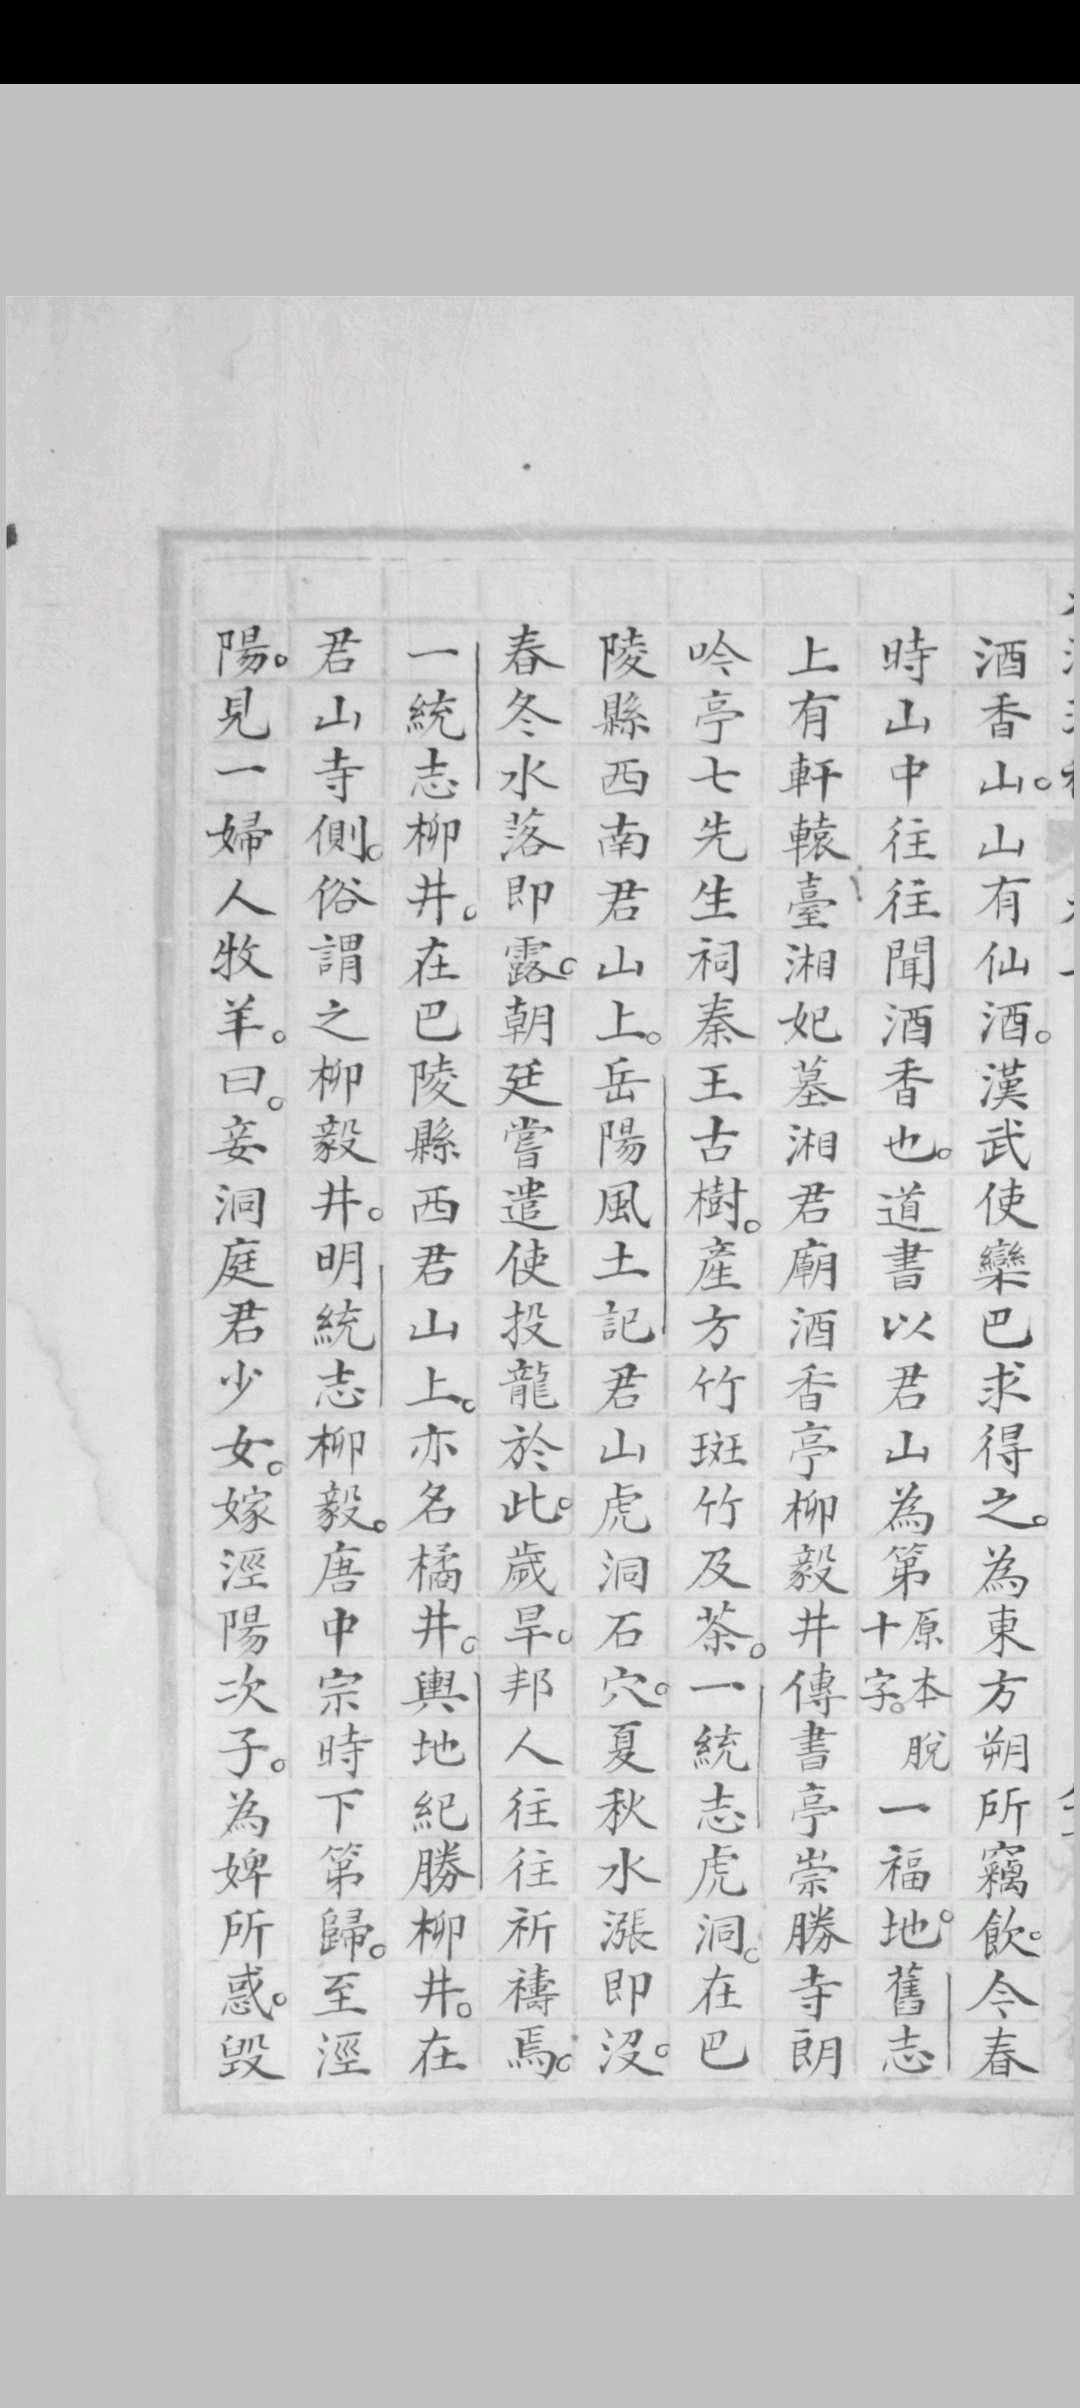 酒香山。山有仙酒。漢武使欒巴求得之。為東方朔所竊飲。今春
時山中往往聞酒香也。道書以君山為第原本脫十字。一福地。舊志
上有軒轅臺湘妃墓湘君廟酒香亭柳毅井傳書亭崇勝寺朗
吟亭七先生祠秦王古樹。產方竹斑竹及茶。一統志虎洞。在巴
陵縣西南君山上。岳陽風土記君山虎洞石穴。夏秋水漲即沒。
春冬水落即露。朝廷嘗遣使投龍於此。歲旱。邦人往往祈禱焉。
一統志柳井。在巴陵縣西君山上。亦名橘井。輿地紀勝柳井。在
君山寺側。俗謂之柳毅井。明統志柳毅。唐中宗時下第歸。至涇
陽。見一婦人牧羊。曰。妾洞庭君少女。嫁涇陽次子。為婢所惑。毀